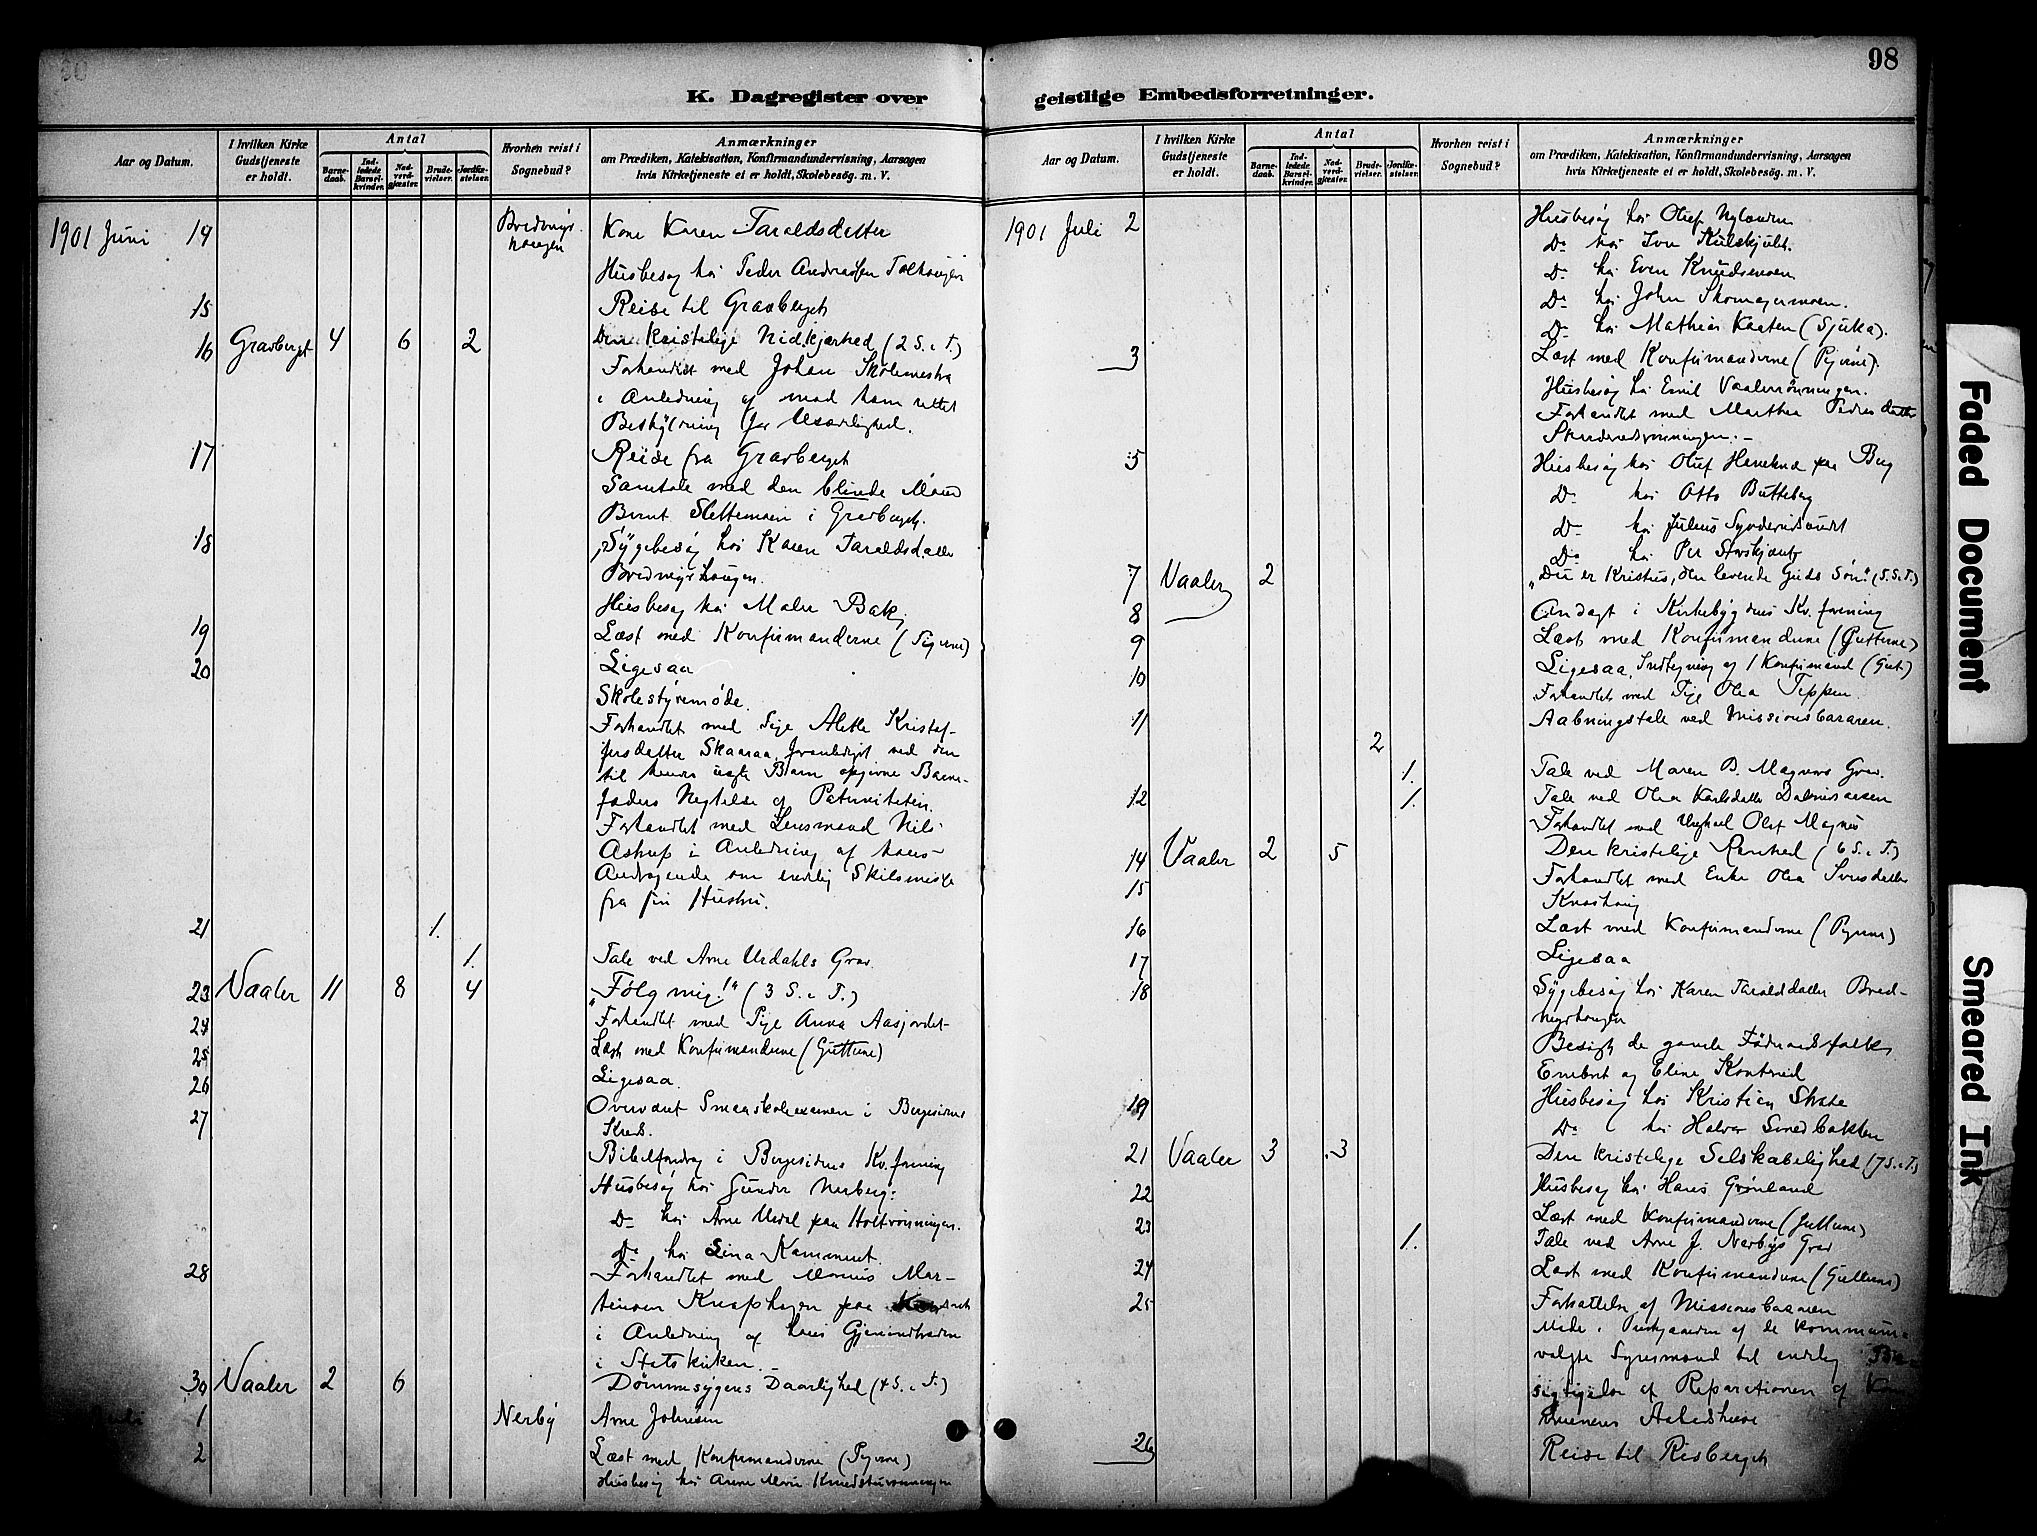 98
K. Dagregister over
geistlige Embedsforretninger.
Aar og Datum.
I hvilken Kirke Gudstjeneste er holdt.
Antal
Barnedaab.
Indledede Barselkvinder.
Nadverdgjæster.
Brudevielser.
Jordfæstelser.
Hvorhen reist i Sognebud?
Anmærkninger
om Prædiken, Katekisation, Konfirmandundervisning, Aarsagen
hvis Kirketjeneste ei er holdt, Skolebesøg. m. V.
1901 Juni 14 Kone Karen Taraldsdatter
Husbesøg hos Peder Andreassen
15 Reise til Gravberget
16 Gravberget 4 6 2 Den Kristelige Nidkjærhed (2 S. e. T.)
Forhandlet med Johan
i Anledning af mod ham rettet
Beskyldning for
17 Reise fra Gravberget
Samtale med den blinde Mand
Bernt Slettemoen i Gravberget.
18 Sygebesøg hos Karen Taraldsdatter
Husbesøg hos Maler Bak
19 Læst med Konfirmanderne (Pigerne)
20 Ligesaa
Skolestyremøde.
Forhandlet med Pige Alette Kristof-
fersdatter Skaaraa foranlediget ved den
til hendes uægte Barn opgivne Barne-
faders Negtelse af Paterniteten.
Forhandlet med Lensmand Nils
Astrup i Anledning af hans
Andragende om endelig Skilsmisse
fra sin Hustru.
21 1.
1. Tale ved Arne Urdahls Grav.
23 Vaaler 11 8 4 "Følg mig!" (3 S. e. T.)
24 Forhandlet med Pige Anna Aasjordet
25 Læst med Konfirmanderne (Gutterne)
26 Ligesaa.
27 Overværet Smaaskoleexamen i Bergesidens
Kreds.
Bibelforedrag i Bergesidens Kv. forening
Husbesøg hos Gunder Nerberg.
Do hos Arne Urdal paa Holtrønningen.
Do hos Lina Kammeret.
28 Forhandlet med Mar-
tinsen Knaphagen paa
i Anledning af hans Gjenindtræden
i Statskirken.
30 Vaaler 2 6 Dømmesygens Daarlighed (4 S. e. T.)
Juli 1 Nerby Arne Johnsen
2 Læst med Konfirmanderne (Pigerne)
Husbesøg hos
Aar og Datum.
I hvilken Kirke Gudstjeneste er holdt.
Antal
Barnedaab.
Indledede Barselkvinder.
Nadverdgjæster.
Brudevielser.
Jordfæstelser.
Hvorhen reist i Sognebud?
Anmærkninger
om Prædiken, Katekisation, Konfirmandundervisning, Aarsagen
hvis Kirketjeneste ei er holdt, Skolebesøg. m. V.
1901 Juli 2 Husbesøg hos Oluf Nylænden
Do hos
Do hos Even Knudsmoen
Do hos John Skomagermoen.
Do hos Mathias Kaaten (Sjuka).
3 Læst med Konfirmanderne (Pigerne).
Husbesøg hos Emil Vaalerrønningen.
Forhandlet med Marthea Pedersdatter
5 Husbesøg hos Oluf paa Berg
Do hos Otto Butteberg
Do hos Julius
Do hos Per
7 Vaaler 2 "Du er Kristus, den levende Guds Søn" (5. S. e. T.)
8 Andagt i Kirkebygdens Kv. forening
9 Læst med Konfirmanderne (Gutterne)
10 Ligesaa. Indtegning af 1 Konfirmand (Gut.)
Forhandlet med Pige Olea Teppen
11 Aabningstale ved Missionsbasaren.
2
1. Tale ved Maren B. Magnus Grav.
12 1. Tale ved Olea Karlsdatter
Forhandlet med Ungkarl Olaf Magnus
14 Vaaler 2 5 Den kristelige Renhed (6 S. e. T.)
15 Forhandlet med Enke Olea Iversdatter
16 Læst med Konfirmanderne (Pigerne)
17 Ligesaa
18 Sygebesøg hos Karen Taraldsdatter Bred-
Besøgt de gamle Føderaadsfolk
Embret og Eline
19 Husbesøg hos Kristian
Do hos Halvor Smedbakken
21 Vaaler 3 3 Den kristelige Selskabelighed (7 S. e. T.)
22 Husbesøg hos Hans Grønland
23 Læst med Konfirmanderne (Gutterne)
1. Tale ved Arne J. Nerbys Grav
24 Læst med Konfirmanderne (Gutterne)
25 Fortsættelse af Missionsbasaren
Møde i af de
valgte Synsmænd til endelig
sigtigelse af Reparationen af
26 Reise til Risberget
Faded Document
Smeared Ink